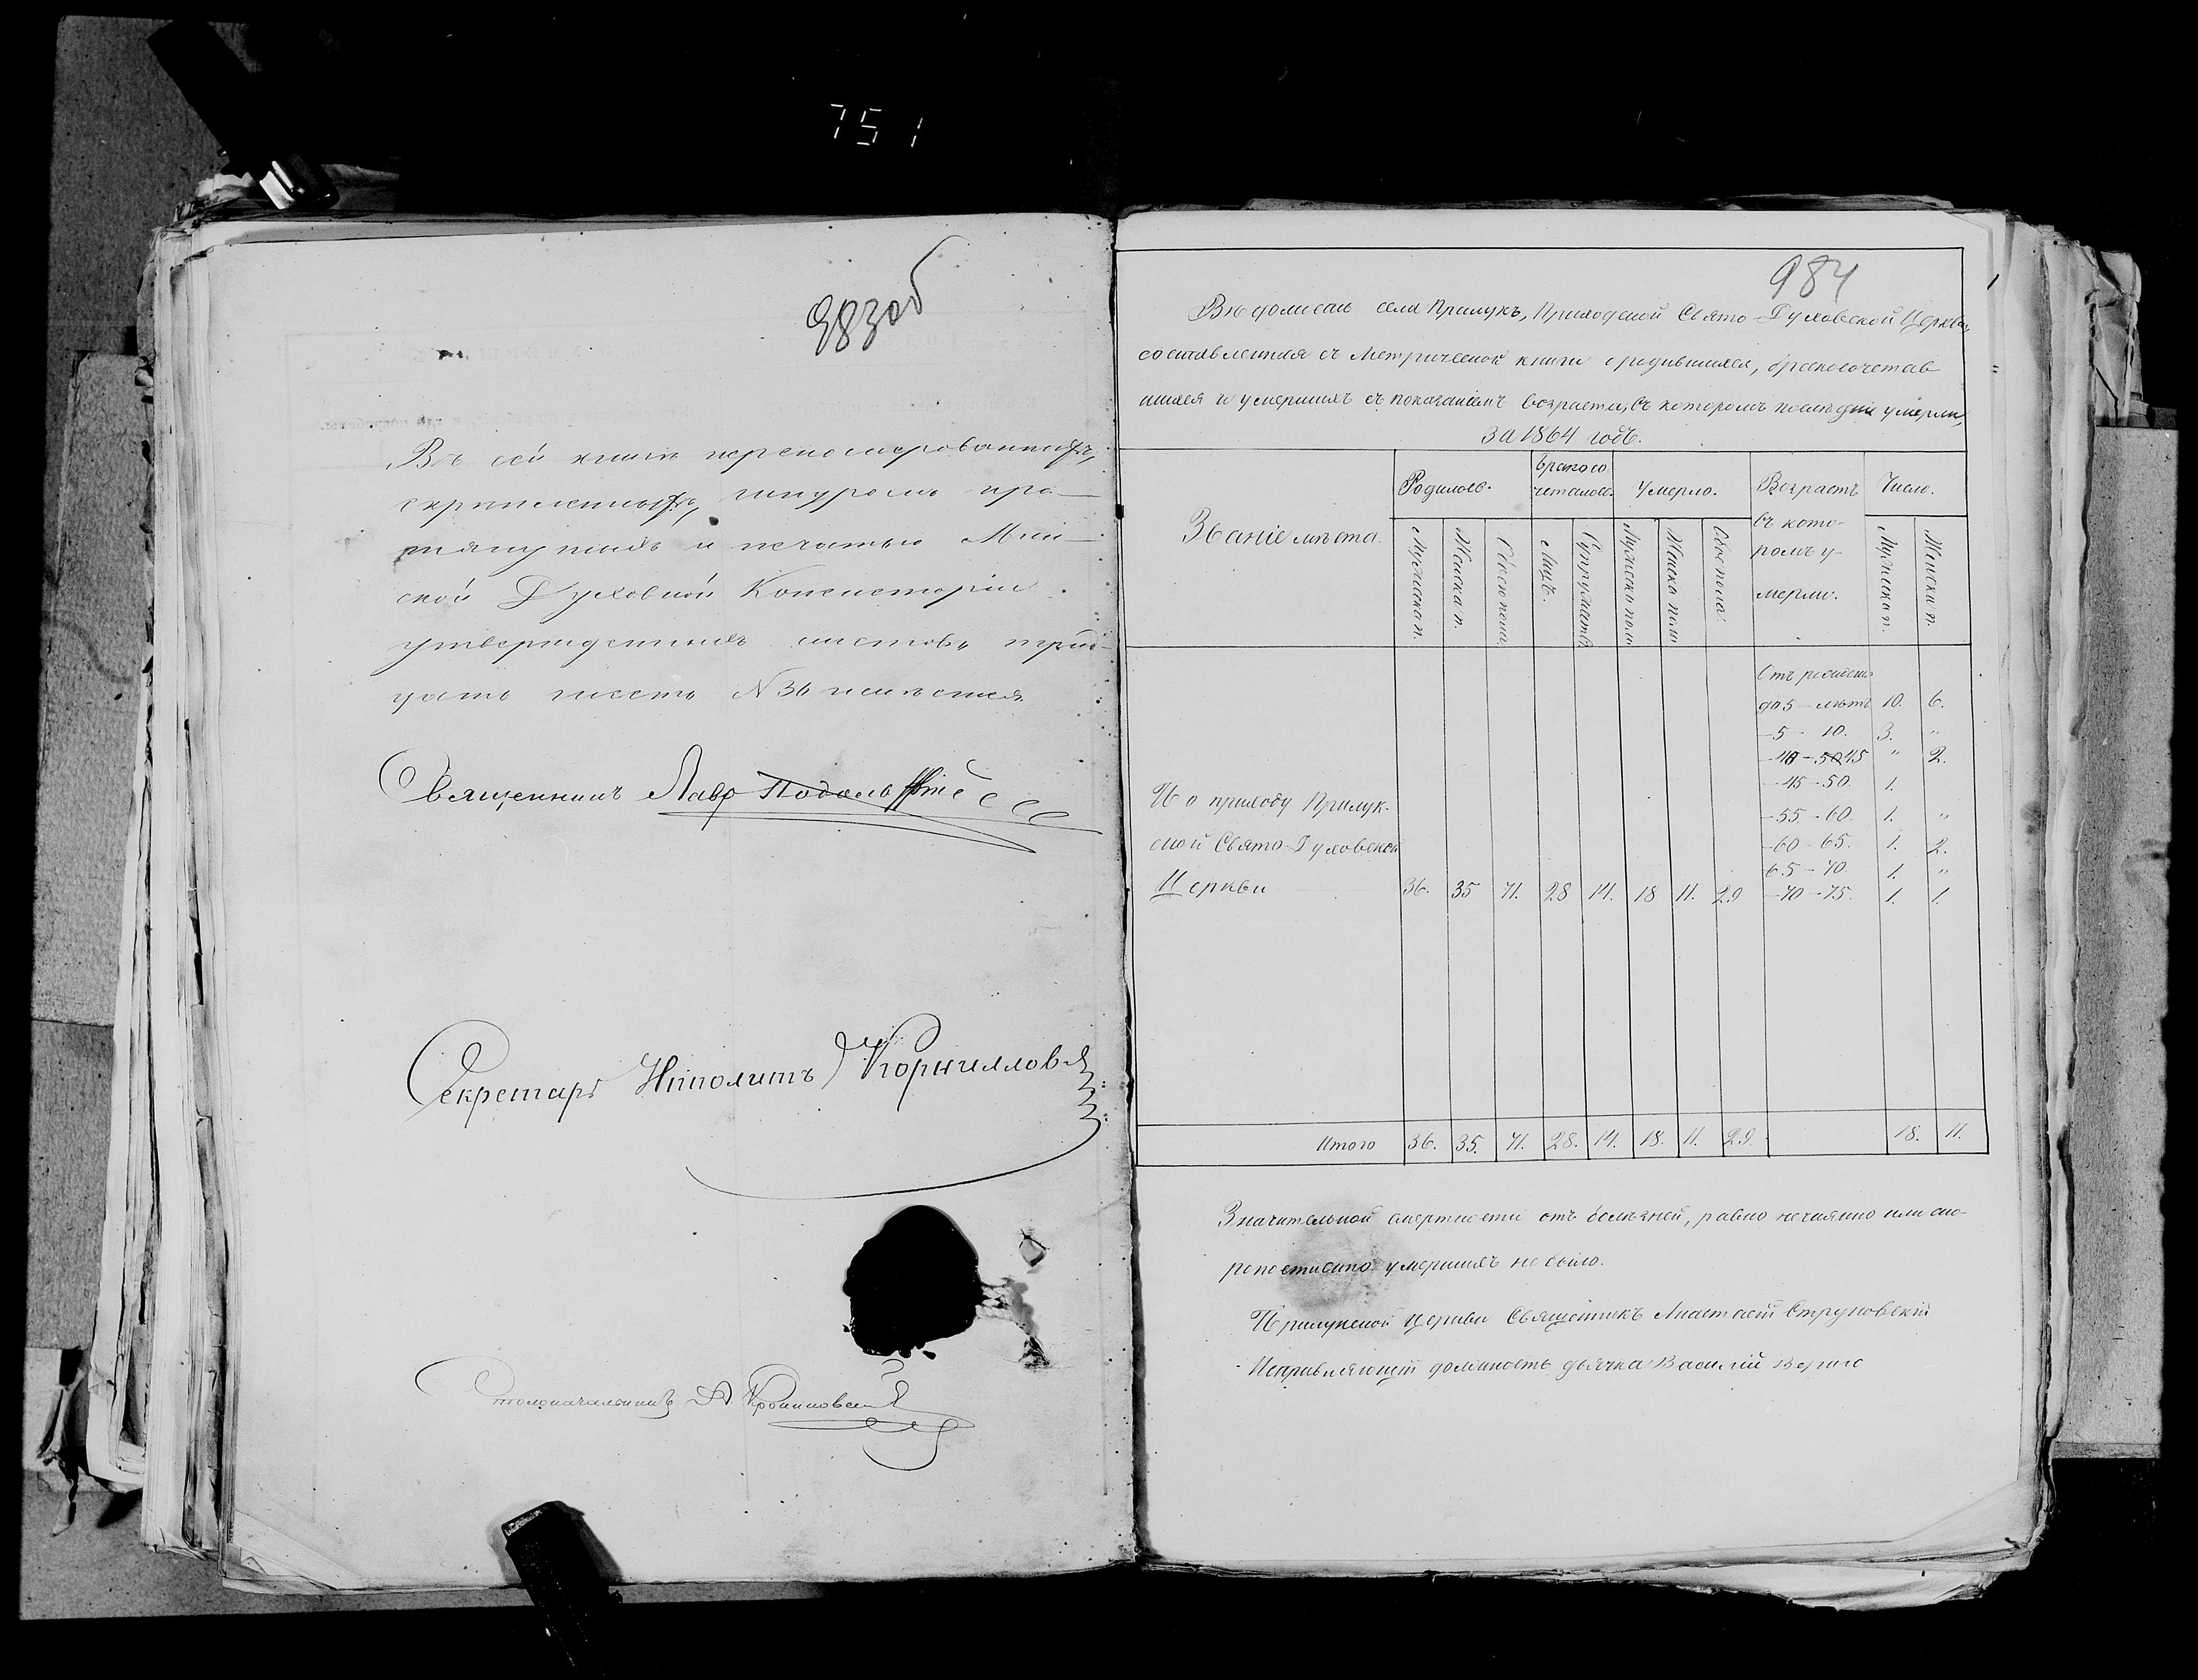 751
983об
Въ сей книгѣ перенумерованныхъ,
скрѣпленныхъ, шнуромъ про-
тянутыхъ и печатью Мин-
ской Духовной Консисторіи
утвержденныхъ листовъ трид-
цать шесть №36 имѣется
Священникъ
Секретарь Иполитъ Корниловъ
Столоначальникъ А
984
Вѣдомость села Прилукъ, Приходской Свято-Духовской Церкви,
составленная съ Метрической книги о родившихся, бракосочетав
шихся и умершихъ съ показаніемъ возраста, въ которомъ послѣдніе умерли,
за 1864 годъ.
Званіе мѣста.
Родилось.
Бракосо
четалось.
Умерло.
Возрастъ
въ кото-
ромъ у-
мерли.
Число.
Мужеска п.
Женска п.
Обоего пола.
Лицъ.
Супружествъ
Мужеска пола
Женска пола
Обоего пола.
Мужеска п.
Женска п.
Отъ рожденія
до 5 - лѣтъ 10. 6.
-5 - 10. 3. "
-40 - 45 " 2.
-45 - 50. 1.
-55 - 60. 1. "
-60 - 65. 1. 2.
65 - 70. 1. "
-70 - 75. 1. 1.
По приходу Прилук-
ской Свято-Духовской
Церкви 36. 35 71. 28 14. 18 11. 29
Итого 36. 35. 71. 28. 14. 18. 11. 29. 18. 11.
Значительной смертности отъ болѣзней, равно нечаянно или ско-
ропостижно умершихъ не было.
Прилукской церкви Священникъ Анастасій Струковскій
Исправляющій должность дьячка Василій